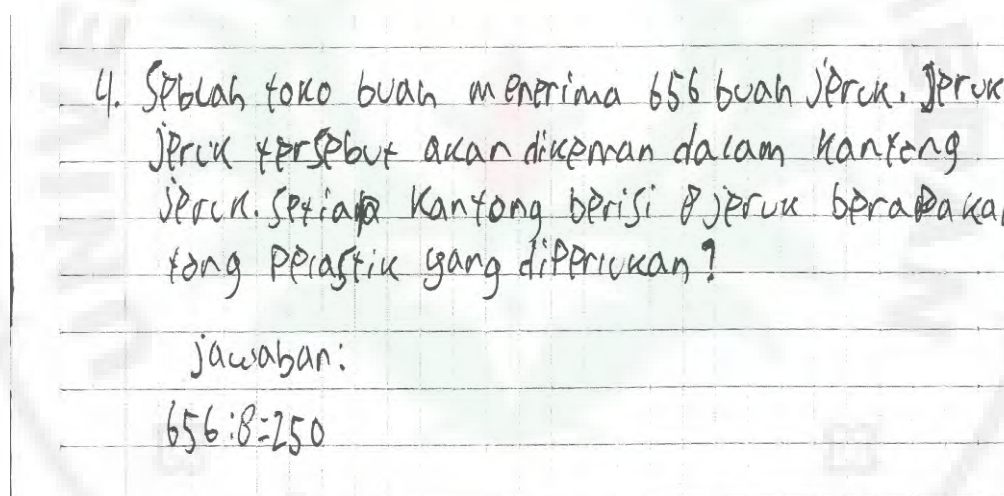 4. Seblah toko buah menerima 656 buah jeruk. Jeruk
jeruk tersebut akan dikeman dalam kantong
jeruk. Setiap kantong berisi 8 jeruk berapa kan
tong pelastik yang diperlukan?
jawaban:
656:8=250